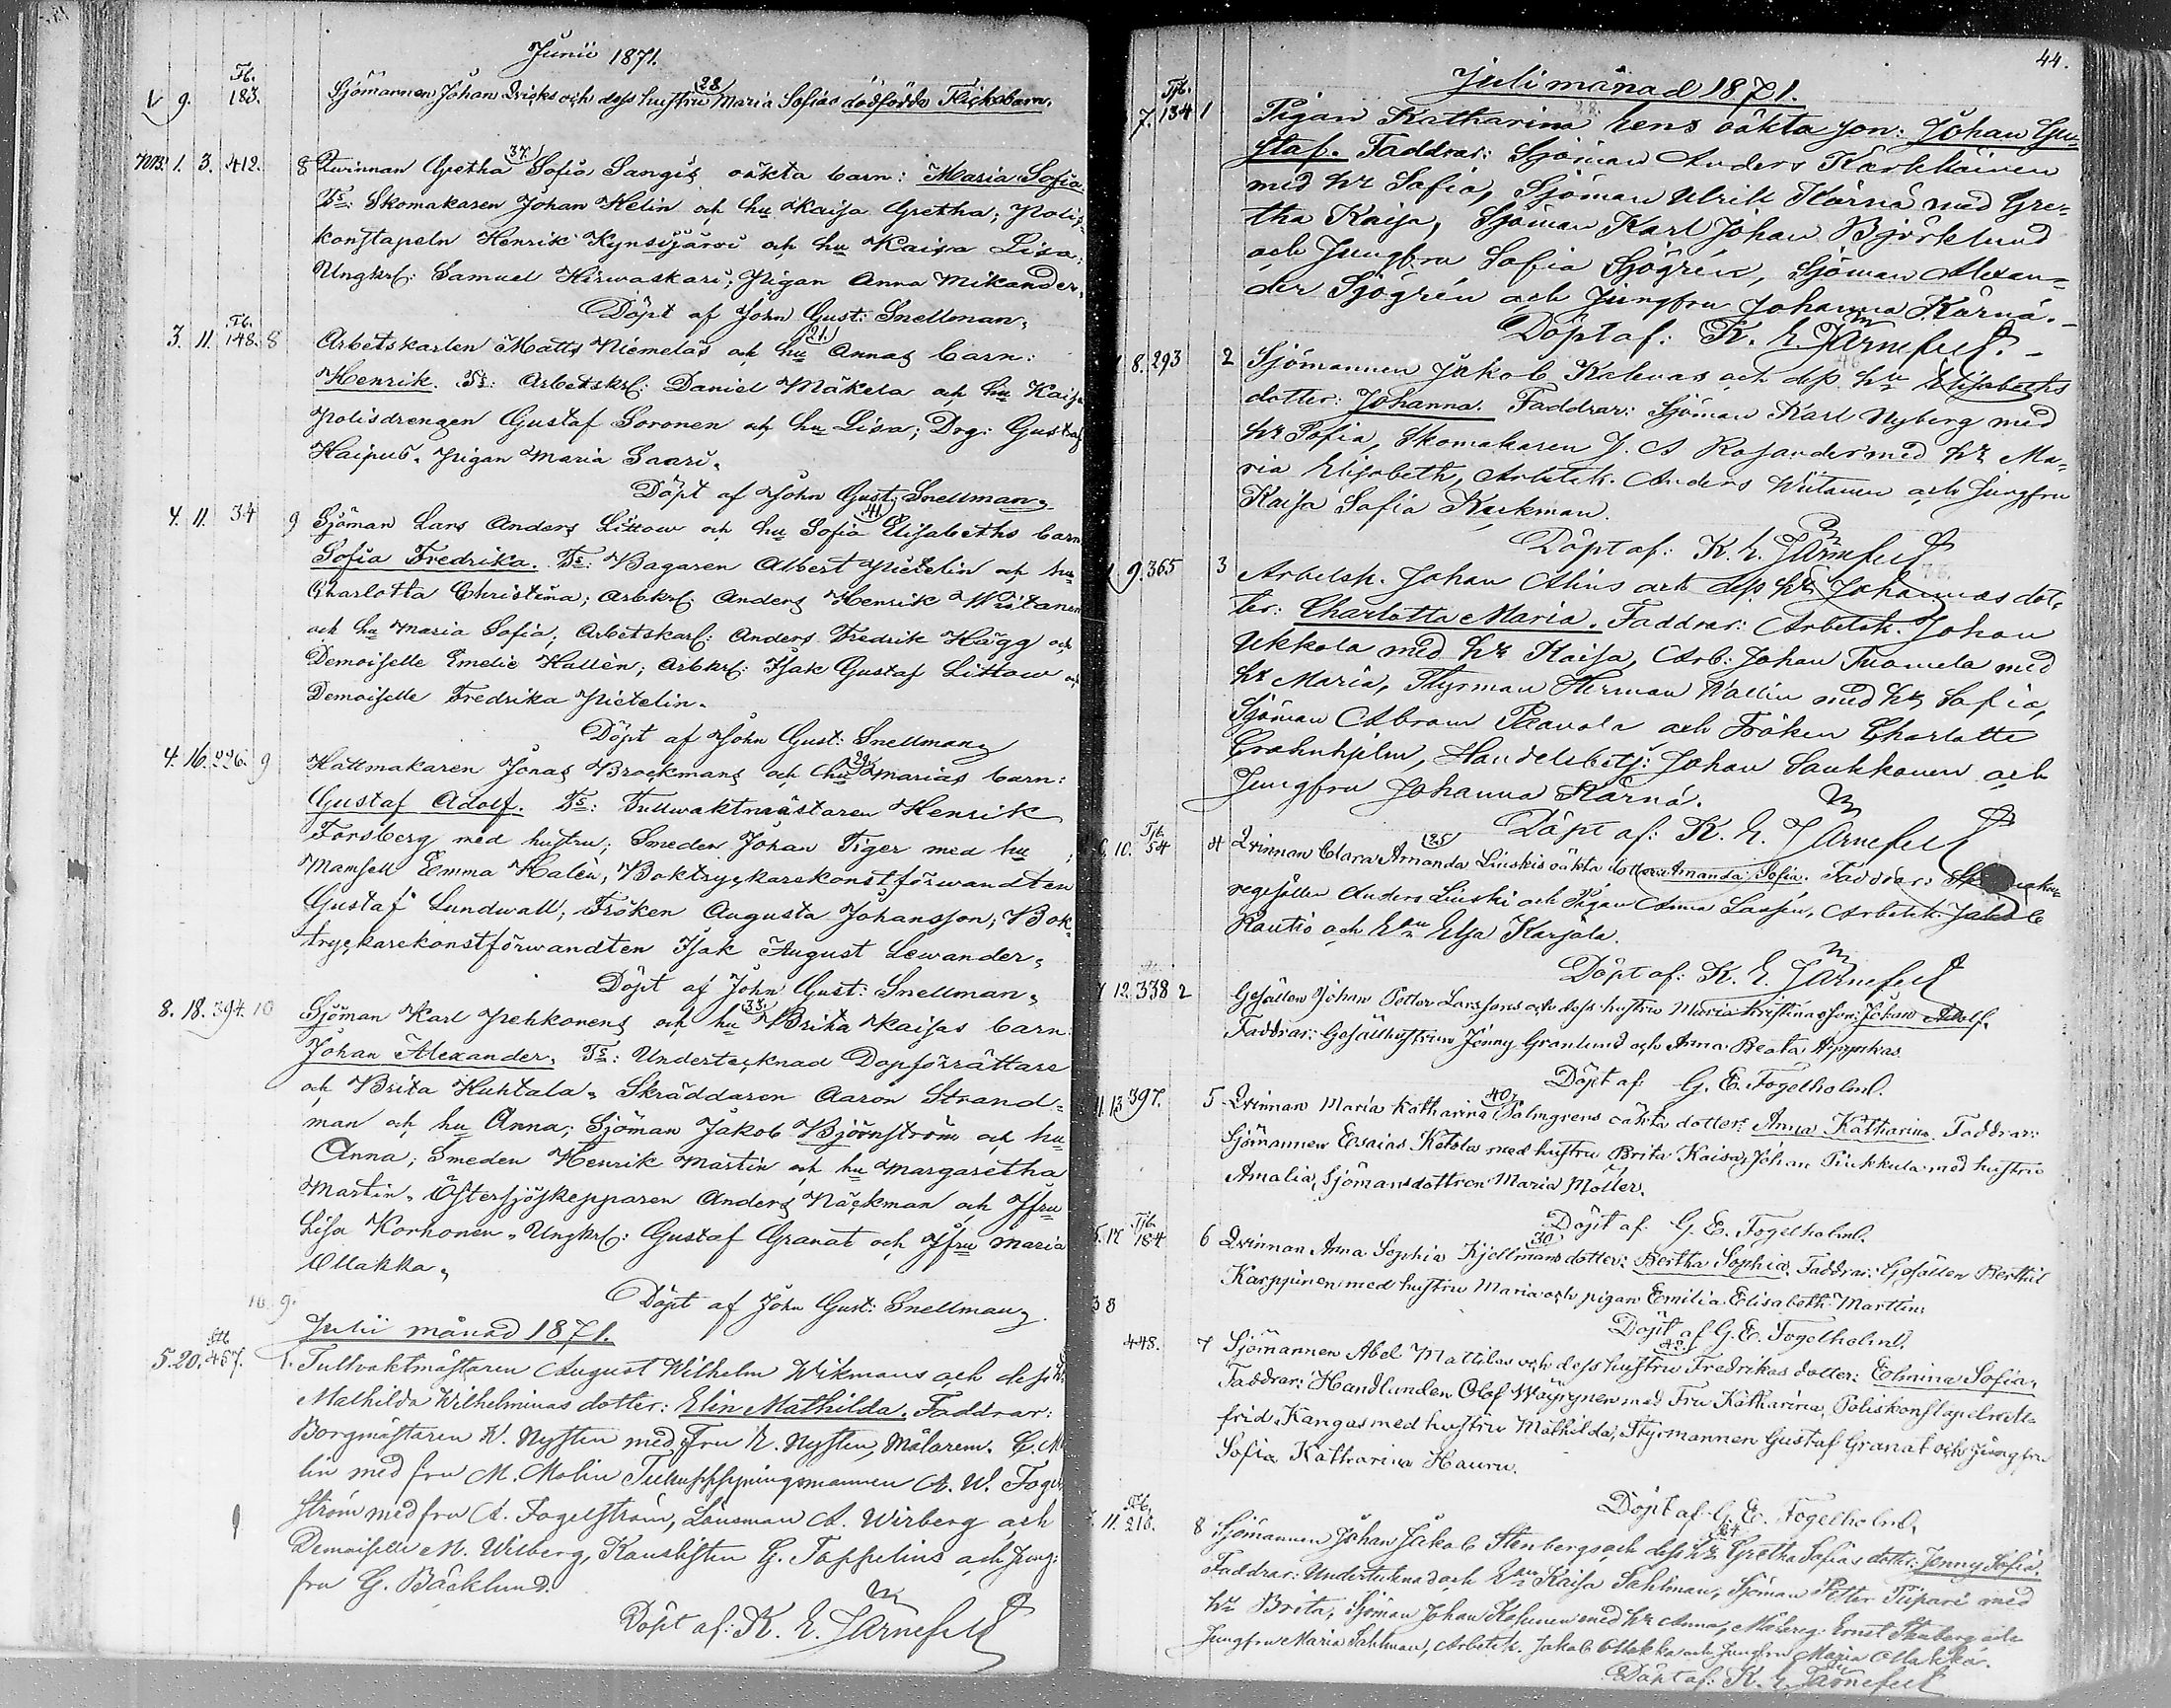 Junii 1871.
V 9. Fb. 183. Sjömannen Johan Dicks och dess hustru (28) Maria Sofias dödfödda Flickobarn.
NB. 1. 3. 412. 8 Qvinnan Gretha (37) Sofia Sangis oäkta barn: Maria Sofia.
Fs: Skomakaren Johan Helin och hu Kaisa Gretha; Polis-
konstapeln Henrik Kynsijärvi och hu Kaisa Lisa;
Ungkrl: Samuel Hirwaskari; Pigan Anna Mikander.
Döpt af John Gust: Snellman.
3. 11. Fb. 148. 8 Arbetskarlen Matts Niemeläs och hu (21) Annas barn:
Henrik. Fs: Arbetskrl: Daniel Mäkelä och hu Kaisa
Polisdrengen Gustaf Soronen och hu Lisa; Drg: Gustaf
Haipus. Pigan Maria Saari.
Döpt af John Gust: Snellman.
4. 11. 34 9 Sjöman Lars Anders Littow och hu Sofia (41) Elisabeths barn
Sofia Fredrika. Fs: Bagaren Albert Pietelin och hu
Charlotta Christina; Arbkrl: Anders Henrik Wiitanen
och hu Maria Sofia. Arbetskarl: Anders Fredrik Hägg och
Demoiselle Emelie Hallèn; Arbkrl: Isak Gustaf Littow och
Demoiselle Fredrika Pietelin.
Döpt af John Gust: Snellman
4. 16. 226. 9 Hattmakaren Jonas Brockmans och hu (29) Marias barn:
Gustaf Adolf. Fs: Tullwaktmästaren Henrik
Forsberg med hustru; Smeden Johan Tiger med hu ;
Mamsell Emma Halèn; Boktryckarekonstförwandten
Gustaf Lundwall; Fröken Augusta Johansson; Bok-
tryckarekonstförwandten Isak August Lewander.
Döpt af John Gust: Snellman.
8. 18. 394. 10 Sjöman Karl Pehkonens och hu (33) Brita Kaisas barn
Johan Alexander. Fs: Undertecknad Dopförrättare
och Brita Huhtala. Skräddaren Aaron Strand-
man och hu Anna; Sjöman Jakob Björnström och hu
Anna; Smeden Henrik Martin och hu Margaretha
Martin. Östersjöskepparen Anders Näckman och Jfru
Lisa Korhonen. Ungkrl: Gustaf Granat och Jfru Maria
Ollakka.
10. 9.
Döpt af John Gust: Snellman.
Julii månad 1871.
5. 20. 457. 1. Tullvaktmästaren August Wilhelm Wikmans och dess
Mathilda Wilhelminas dotter: Elin Mathilda. Faddrar:
Borgmästaren K. Nysten med Fru E. Nysten, Målarem. C. Mo
lin med fru M. Molin A. W. Fogel
ström med fru A. Fogelström, Länsman A. Wirberg och
Demoiselle M. Wiberg, Kanslisten G. Toppelius och Jung-
fru G. Bäcklund.
Döpt af: K. E. Järnefelt
44.
Juli månad 1871.
7. Fb. 134 1 Pigan Katharina hens oäkta son: Johan Gu-
staf. Faddrar: Sjöman Anders Karkkäinen
med hr Sofia, Sjöman Ulrik Kärnä med Gre-
tha Kaisa, Sjöman Karl Johan Björklund
och Jungfru Sofia Sjögrén, Sjöman Alexan-
der Sjögrén och Jungfru Johanna Kärnä.
Döpt af: K. E. Järnefelt.
8. 293 2 Sjömannen Jakob Kalevas och dess hu Elisabeths
dotter: Johanna. Faddrar: Sjöman Karl Nyberg med
hr Sofia, Skomakaren J. A Rosander med hr Ma-
ria Elisabeth, Arbetsk. Anders Wiitanen och Jungfru
Kaisa Sofia Kurkman.
Döpt af: K. E. Järnefelt
9. 365 3 Arbetsk. Johan Ahlus och dess hr Johannas dot-
ter: Charlotta Maria. Faddrar: Arbetsk. Johan
Ukkola med hr Kaisa, Arb: Johan Tuomela med
hr Maria, Styrman Herman Wallin med hr Sofia,
Sjöman Abram Paavola och Fröken Charlotte
Grahnhjelm, Handelsbetj: Johan Saukkonen och
Jungfru Johanna Kärnä.
Döpt af: K. E. Järnefelt
10. Fb. 54 4 Qvinnan Clara (25) Amanda Linskis oäkta dotter: Amanda Sofia. Faddrar:
regesällen Anders Linski och Pigan Anna Lassén, Arbetsk. Jakob
Rautio och Elsa Karjala.
Döpt af: K. E. Järnefelt
12. 338 2 Gesällen Johan Petter Larssons och dess hustru Maria Kristinas son: Johan Adolf.
Faddrar: Gesällhustrun Jenny Granlund och Anna Beata
Döpt af: G. E. Fogelholm.
11. 13 397. 5 Qvinnan Maria Katharina (40) Palmgrens oäkta dotter: Anna Katharina. Faddrar:
Sjömannen Esaias Ketola med hustru Brita Kaisa, Johan Piukkula med hustru
Amalia, Sjömansdottren Maria Möller.
Döpt af G. E. Fogelholm.
5. 17 Fb. 184 6 Qvinnan Anna Sophia (30) Kjellmans dotter: Bertha Sophia. Faddrar: Gesällen Berthil
Karppinen med hustru Maria och pigan Emilia Elisabeth Martlin.
38
Döpt af G. E. Fogelholm.
448. 7 Sjömannen Abel Mattilas och dess hustru (42) Fredrikas dotter: Elmina Sofia.
Faddrar: Handlanden Olof Wäyrynen med Fru Katharina, Poliskonstapel
frid Kangas med hustru Mathilda, Styrmannen Gustaf Granat och Jungfru
Sofia Katharina Hauru.
Döpt af G. E. Fogelholm.
11. Fb. 216. 8 Sjömannen Johan Jakob Stenbergs och dess hr (24) Gretha Sofias dotter: Jenny Sofia.
Faddrar: Undertecknad och Kaisa Sahlman, Sjöman Petter Tiipari med
hr Brita, Sjöman Johan med hr Anna, Ernst Stenberg och
Jungfru Maria Sahlman, Arbetsk. Jakob Ollakka och Jungfru Maria Ollakka.
Döpt af: K. E. Järnefelt